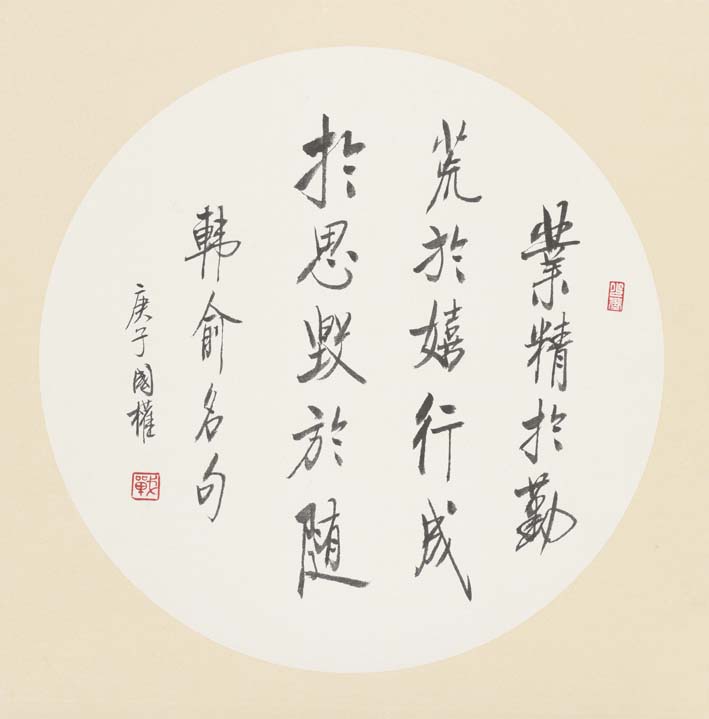 業精於勤
荒於嬉行成
於思毀於随
韩俞名句
庚子國權
戰